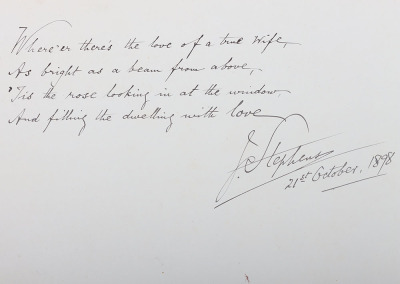 Where'er there's the love of a true Wife,
As bright as a beam from above,
'Tis the rose looking in at the window
And filling the dwelling with love
J. Stephens
21st October, 1898